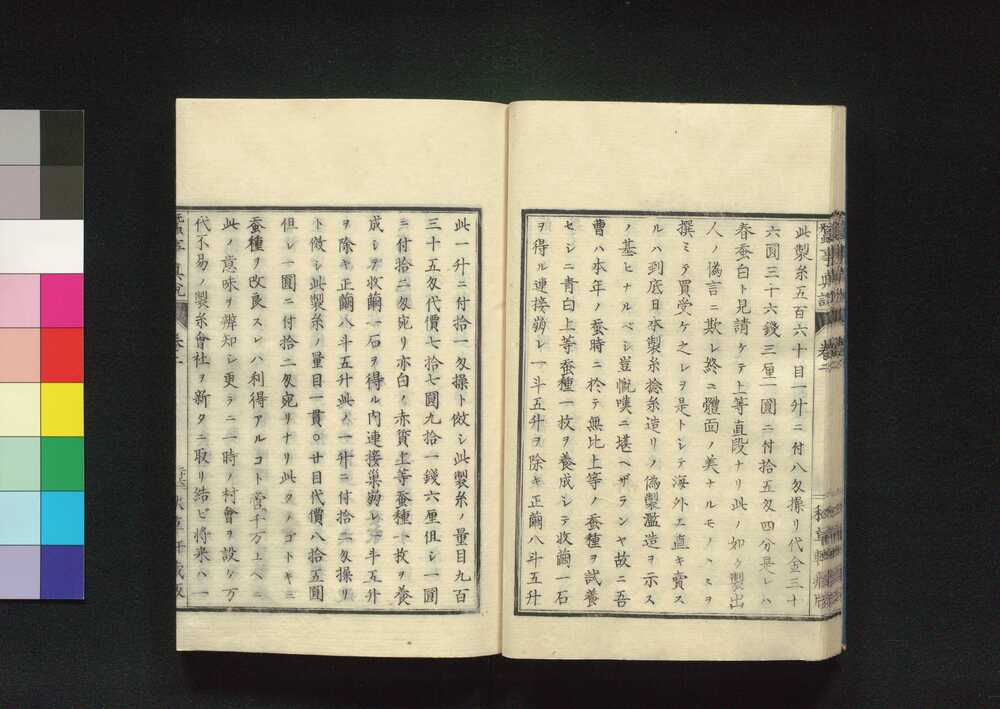 此製糸五百六十目一升ニ付八匁操リ代金三十
六圓三十六錢三厘一圓ニ付拾五匁四分是レハ
春蚕白ト見請ケテ上等直段ナリ此ノ如ク製出
人ノ偽言ニ欺レ終ニ體面ノ美ナルモノノミヲ
撰ミテ買受ケ之レヲ是トシテ海外エ直キ賣ス
ルハ到底日本製糸捻糸造リノ偽製濫造ヲ示ス
ノ基ヒナルベシ豈慨嘆ニ堪ヘザランヤ故ニ吾
曹ハ本年ノ蚕時ニ於テ無比上等ノ蚕種ヲ試養
セシニ青白上等蚕種一枚ヲ養成シテ收繭一石
ヲ得ル連接蒴レ一斗五升ヲ除キ正繭八斗五升
此一升ニ付拾一匁操ト倣シ此製糸ノ量目九百
三十五匁代價七拾七圓九拾一錢六厘但シ一圓
ニ付拾二匁宛リ亦白ノ赤質上等蚕種一枚ヲ養
成シテ收繭一石ヲ得ル内連接巣蒴レ一斗五升
ヲ除キ正繭八斗五升此ノ一升ニ付拾二匁操リ
ト倣シ此製糸ノ量目一貫〇廿目代價八拾五圓
但シ一圓ニ付拾二匁宛リナリ此クノゴトキニ
蚕種ヲ改良スレハ利得アルコト啻ニ千万上ヘニ
此ノ意味ヲ辨知シ更ラニ一時ノ村會ヲ設ケ万
代不易ノ製糸會社ヲ新タニ取リ結ビ将来ハ一